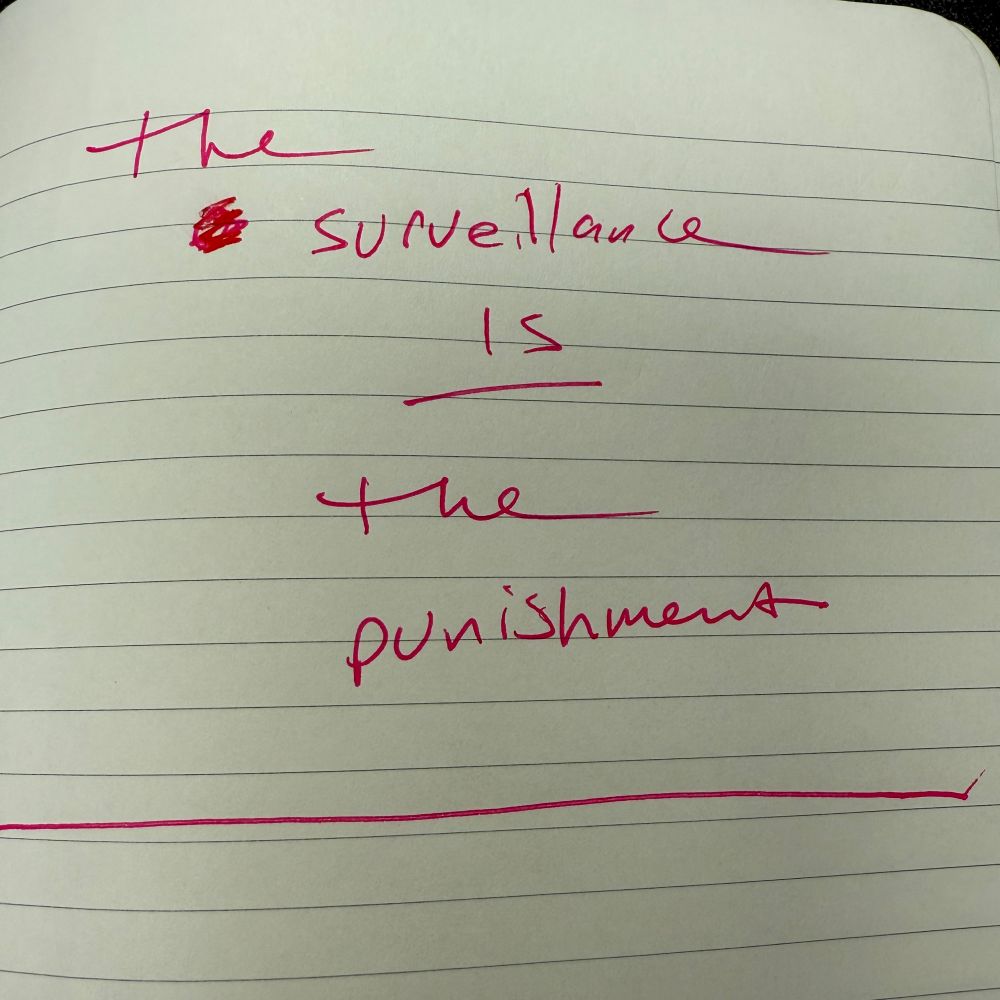 the
surveillance
is
the
punishment